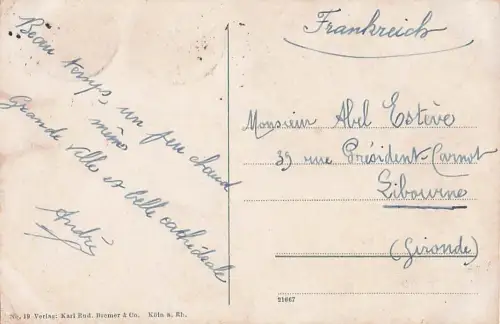 Beau temps, un peu chaud
même
Grande ville et belle cathédrale
André
Frankreich
Monsieur Abel Estève
39 rue Président-Carnot
Libourne
(Gironde)
No. 19 Verlag: Karl Rud. Bremer & Co. Köln a. Rh.
21667